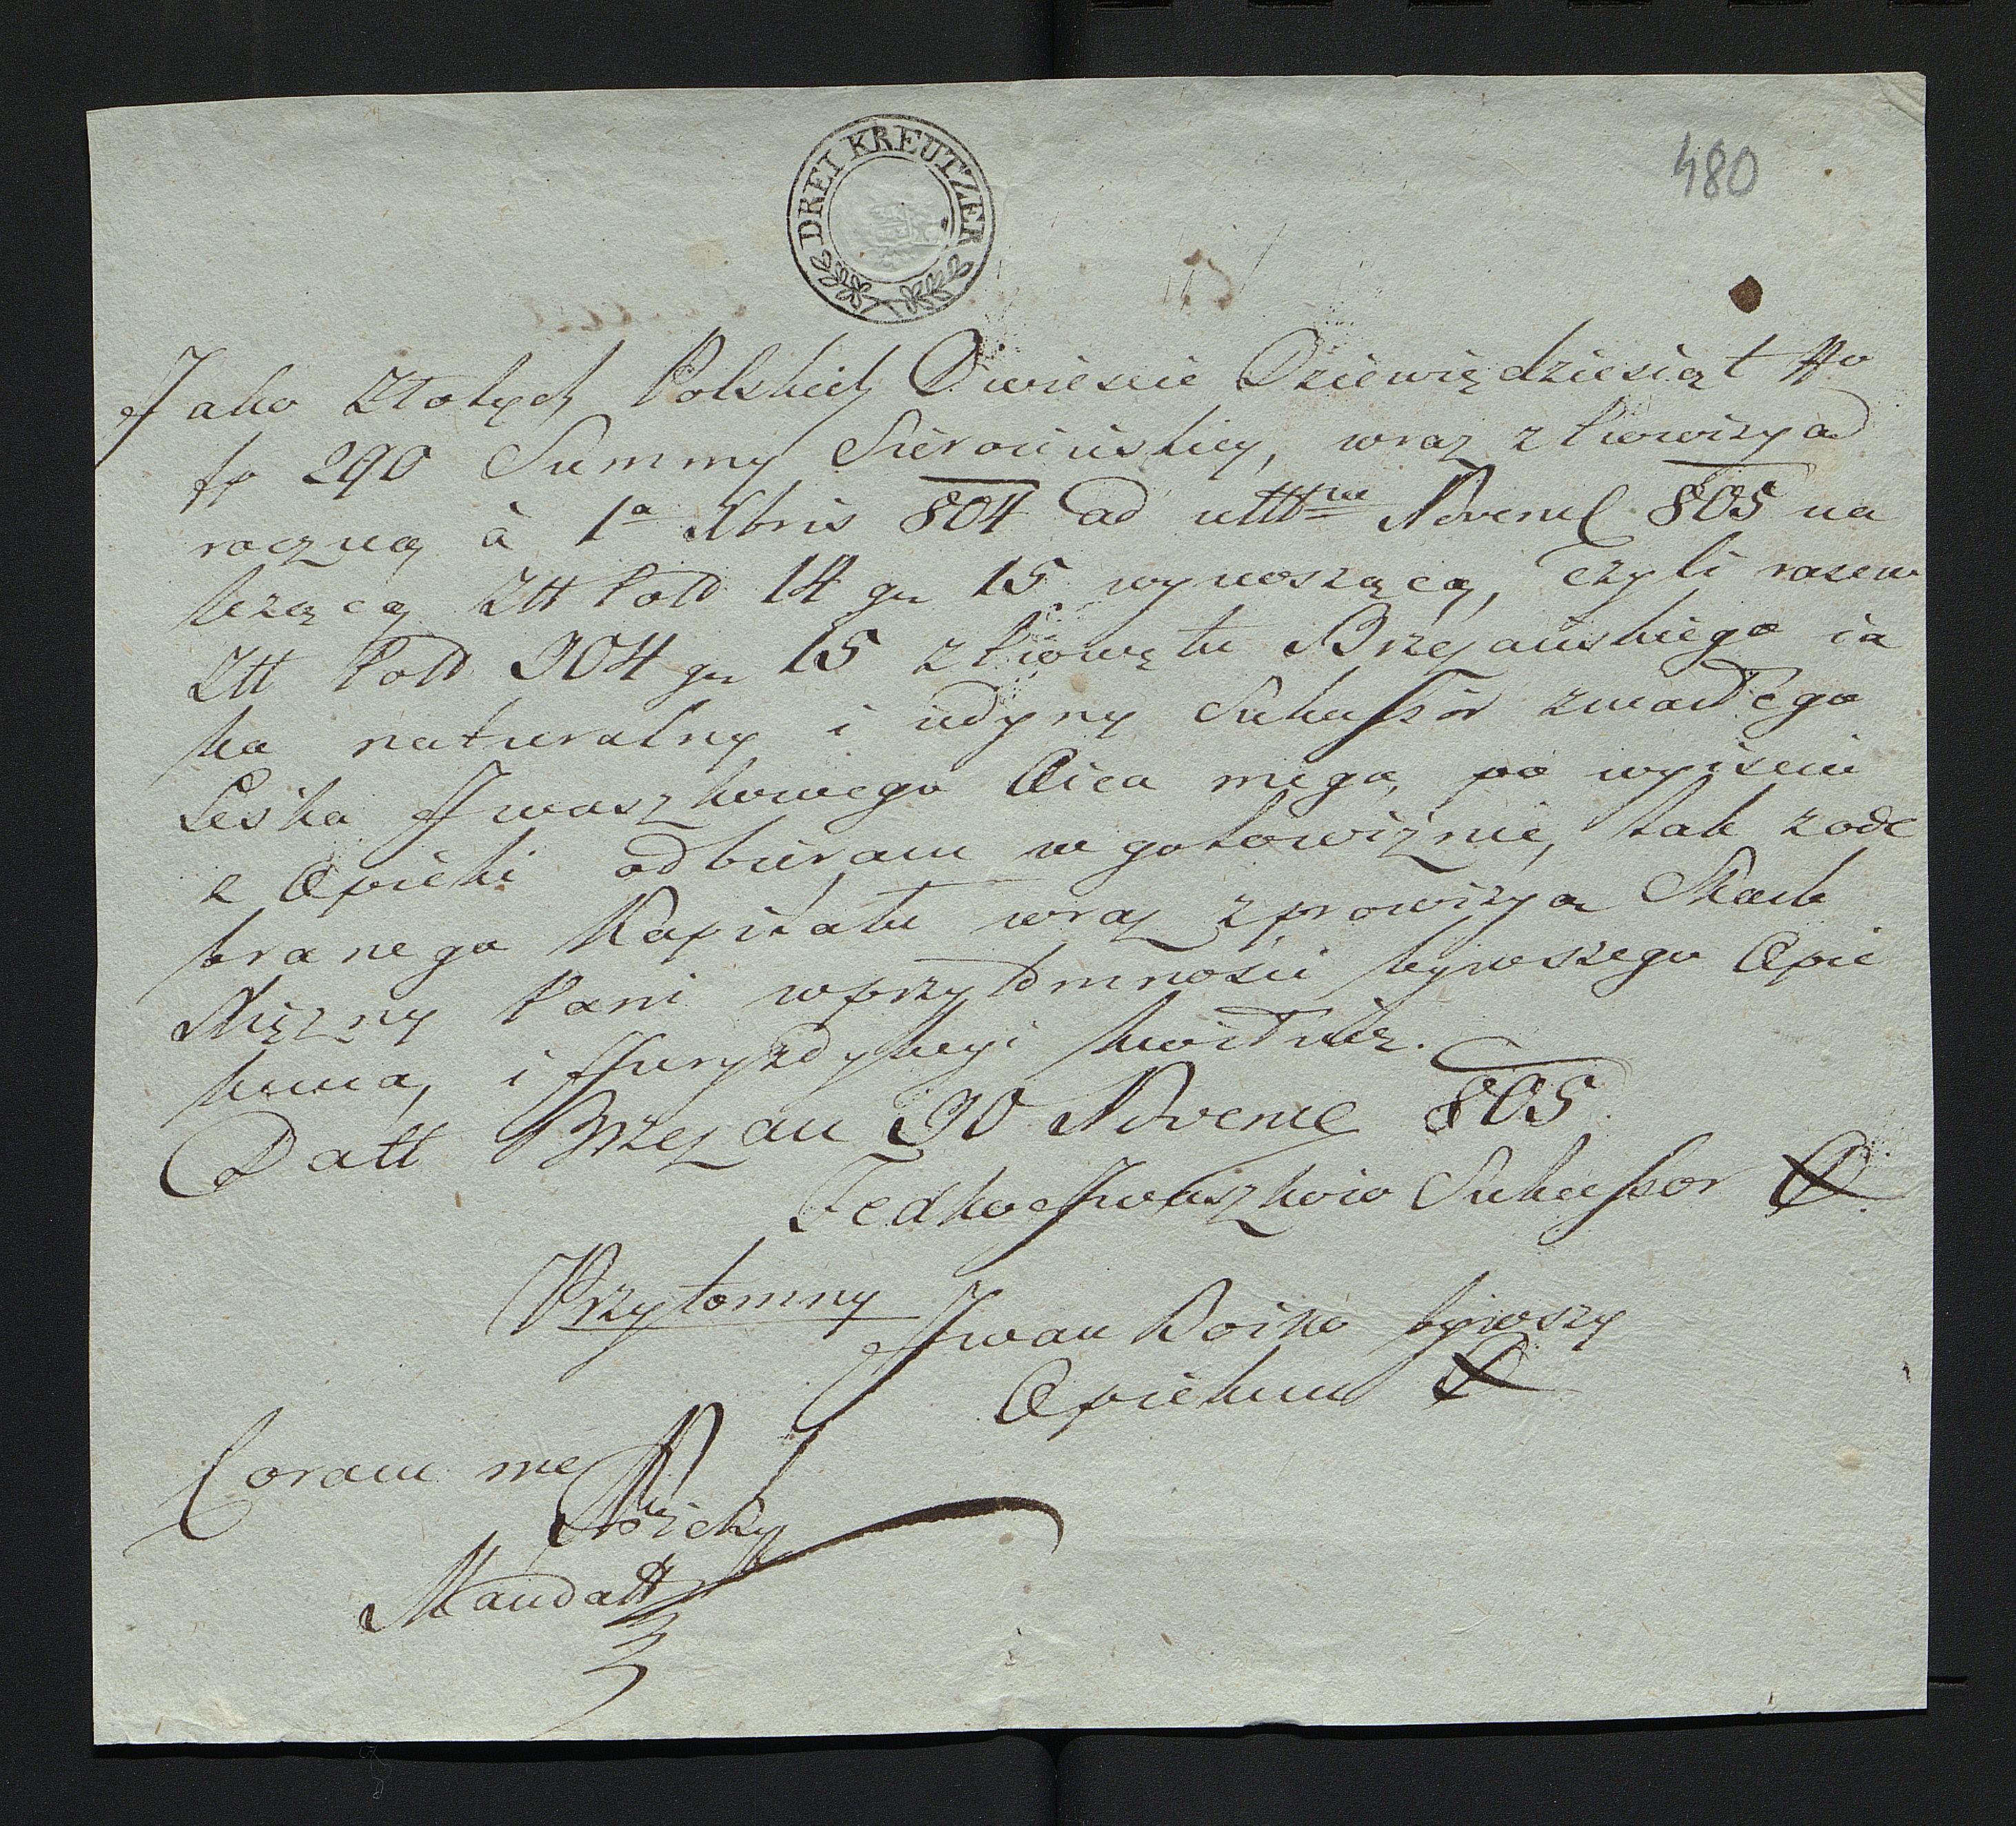 DREI KREUTZER
480
Jako Złotych Polskich Dwieście Dziewiędziesiąt No
fp 290 Summy Sierocińskiey, wraz z Prowizyą
roczną à 1a Xbris 804 ad ulttme Novembr 805 na
leżącą Złł Poll 14 gr 15 wynoszącą, czyli razem
Złł Poll 304 gr 15 z Powiatu Brzeżańskiego ia
ko naturalny i iedyny Sukcessor zmarłego
Leśka Jwaszkowego Oica mego, po wyiściu
z Opieki odbieram w gotowiźnie, tak z ode
branego Kapitału wraz z prowizyą Skarb
Xiężny Pani w przytomności bywszego Opie
kuna, i Juryzdykcyi kwituię.
Datt Brzeżan 30 Novembr 805
Fedko Jwaszkow Sukcessor
Przytomny
Jwan Boiko bywszy
Opiekun
Coram me
Mandatt